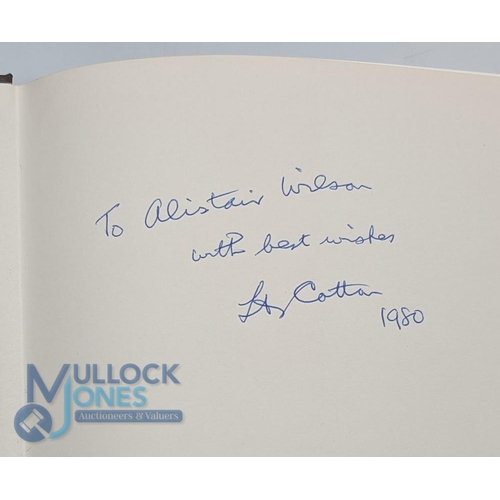 To Alistair Wilson
with best wishes
Hy Cotton
1980
MULLOCK
JONES
Auctioneers & Valuers